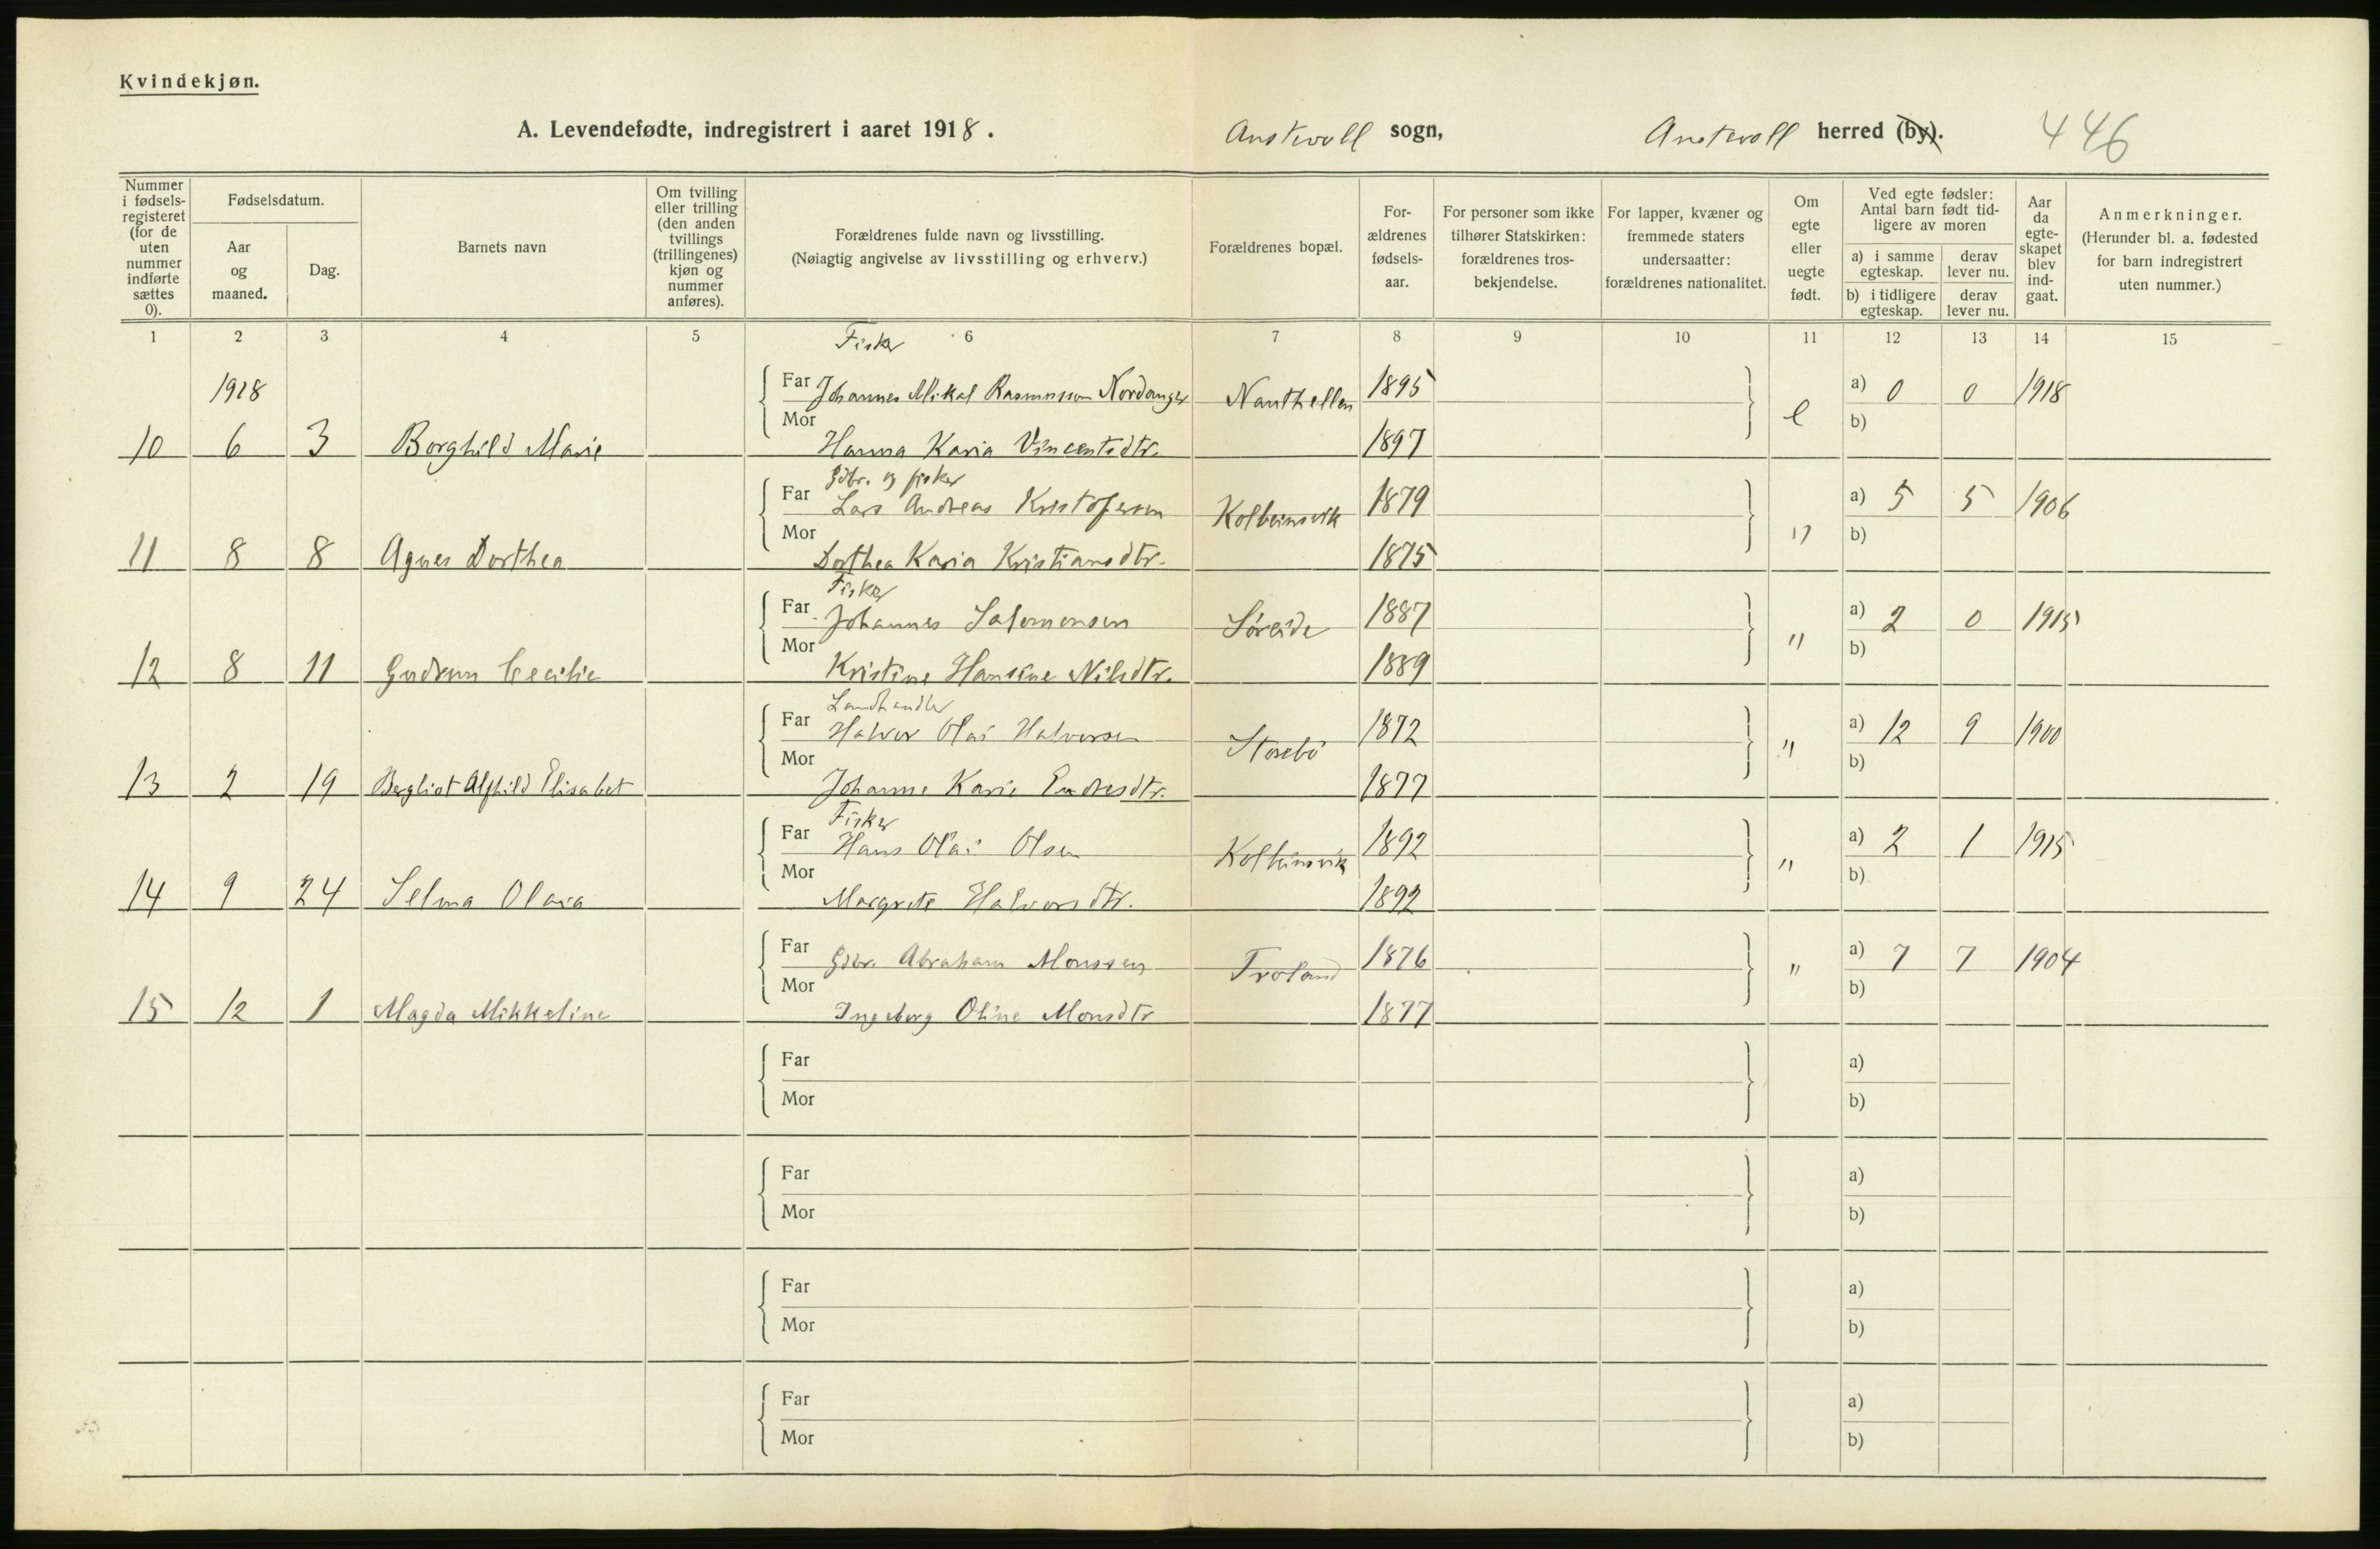 Kvindekjøn.
A. Levendefødte, indregistrert i aaret 1918. Austevoll sogn, Austevoll herred (by). 446
Nummer i fødsels-registeret (for de uten nummer indførte sættes 0).
Fødselsdatum.
Aar og maaned.
Dag.
Barnets navn
Om tvilling eller trilling (den anden tvillings (trillingenes) kjøn og nummer anføres).
Forældrenes fulde navn og livsstilling.
(Nøiagtig angivelse av livsstilling og erhverv.)
Forældrenes bopæl.
For-ældrenes fødsels-aar.
For personer som ikke tilhører Statskirken: forældrenes tros-bekjendelse.
For lapper, kvæner og fremmede staters undersaatter: forældrenes nationalitet.
Om egte eller uegte født.
Ved egte fødsler: Antal barn født tid-ligere av moren
a) i samme egteskap.
derav lever nu.
b) i tidligere egteskap.
derav lever nu.
Aar da egte-skapet blev ind-gaat.
Anmerkninger.
(Herunder bl. a. fødested for barn indregistrert uten nummer.)
1 2 3 4 5 6 7 8 9 10 11 12 13 14 15
Fisker
1918 Far Johannes Mikal Rasmussen Nordanger 1895 a) 0 0 1918
Mor e b)
10 6 3 Borghild Marie Hanna Karia Vincentsdtr. 1897
Gdbr. og fisker
Far Lars Andreas Kristofersen Kolbeinsvik 1879 a) 5 5 1906
Mor " b)
11 8 8 Agnes Dorthea Dorthea Karia Kristiansdtr. 1875
Fisker
Far Johannes Salomonsen Søreide 1887 a) 2 0 1915
Mor " b)
12 8 11 Gudrun Cecilie Kristine Hansine Nilsdtr. 1889
Landhandler
Far Halvor Olai Halvorsen Storebö 1872 a) 12 9 1900
Mor " b)
13 2 19 Bergliot Alfhild Elisabet Johanne Karie Endresdtr. 1877
Fisker
Far Hans Olai Olsen Kolbeinsvik 1892 a) 2 1 1915
Mor " b)
14 9 24 Selma Olava Margrete Halvorsdtr. 1892
Far Gdbr. Abraham Monssen Troland 1876 a) 7 7 1904
Mor " b)
15 12 1 Magda Mikkeline Ingeborg Oline Monsdtr 1877
Far a)
Mor b)
Far a)
Mor b)
Far a)
Mor b)
Far a)
Mor b)